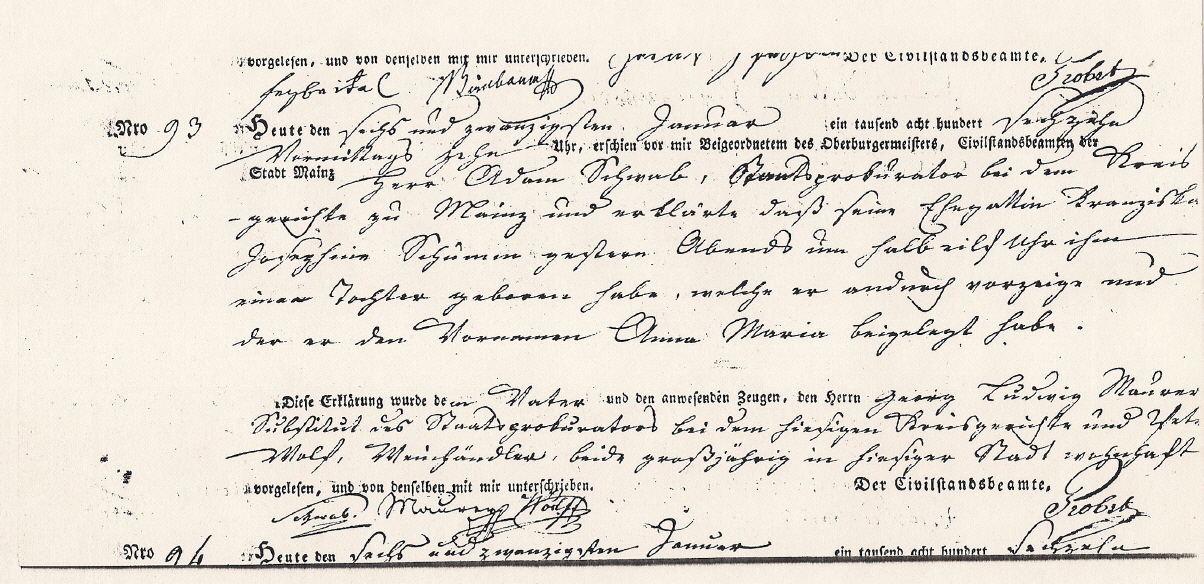 vorgelesen, und von denselben mit mir unterschrieben. Der Civilstandsbeamte,
Birnbaum Probst
Nro 93 Heute den sechs und zwanzigsten Januar ein tausend acht hundert sechzehn
Vormittags zehn Uhr, erschien vor mir Beigeordnetem des Oberburgermeisters, Civilstandsbeamten der
Stadt Mainz Herr Adam Schwab, Staatsprokurator bei dem Kreis
-gerichte zu Mainz und erklärte daß seine Ehegattin Franziska
Josephine Schumm gestern Abends um halb eilf Uhr ihm
einen Tochter geboren habe, welche er andurch vorzeige und
der er den Vornamen Anna Maria beigelegt habe.
Diese Erklärung wurde dem Vater und den anwesenden Zeugen, den Herrn Georg Ludwig Maurer
Substitut des Staatsprokurators bei dem hiesigen Kreisgerichte und
Wolf, Weinhändler, beide großjährig in hiesiger Stadt wohnhaft
vorgelesen, und von denselben mit mir unterschrieben. Der Civilstandsbeamte,
Schwab. Maurer Wolf Probst
Nro 94 Heute den sechs und zwanzigsten Januar ein tausend acht hundert sechzehn